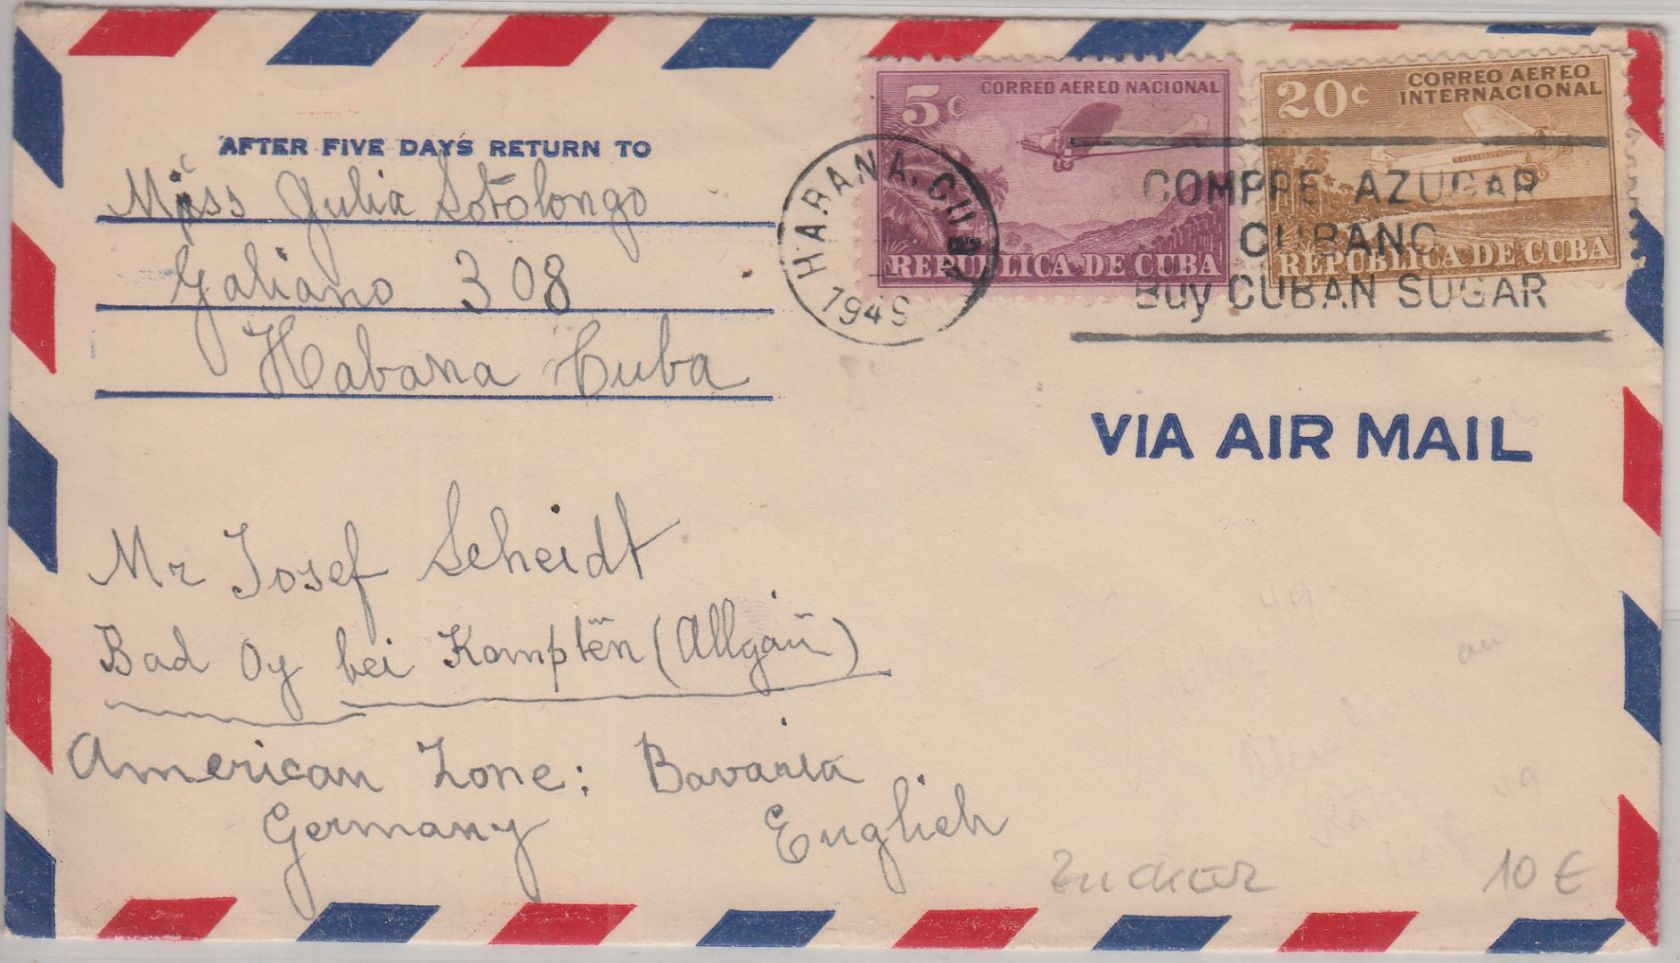 AFTER FIVE DAYS RETURN TO
Miss Julia Sotolongo
Galiano 308
Habana Cuba
5¢ CORREO AEREO NACIONAL
REPUBLICA DE CUBA
20¢ CORREO AEREO
INTERNACIONAL
REPUBLICA DE CUBA
HABANA, CUBA
1949
COMPRE AZUCAR
CUBANO
Buy CUBAN SUGAR
VIA AIR MAIL
Mr Josef Scheidt
Bad Oy bei Kempten (Allgäu)
American Zone: Bavaria
Germany English
Zucker 10 €